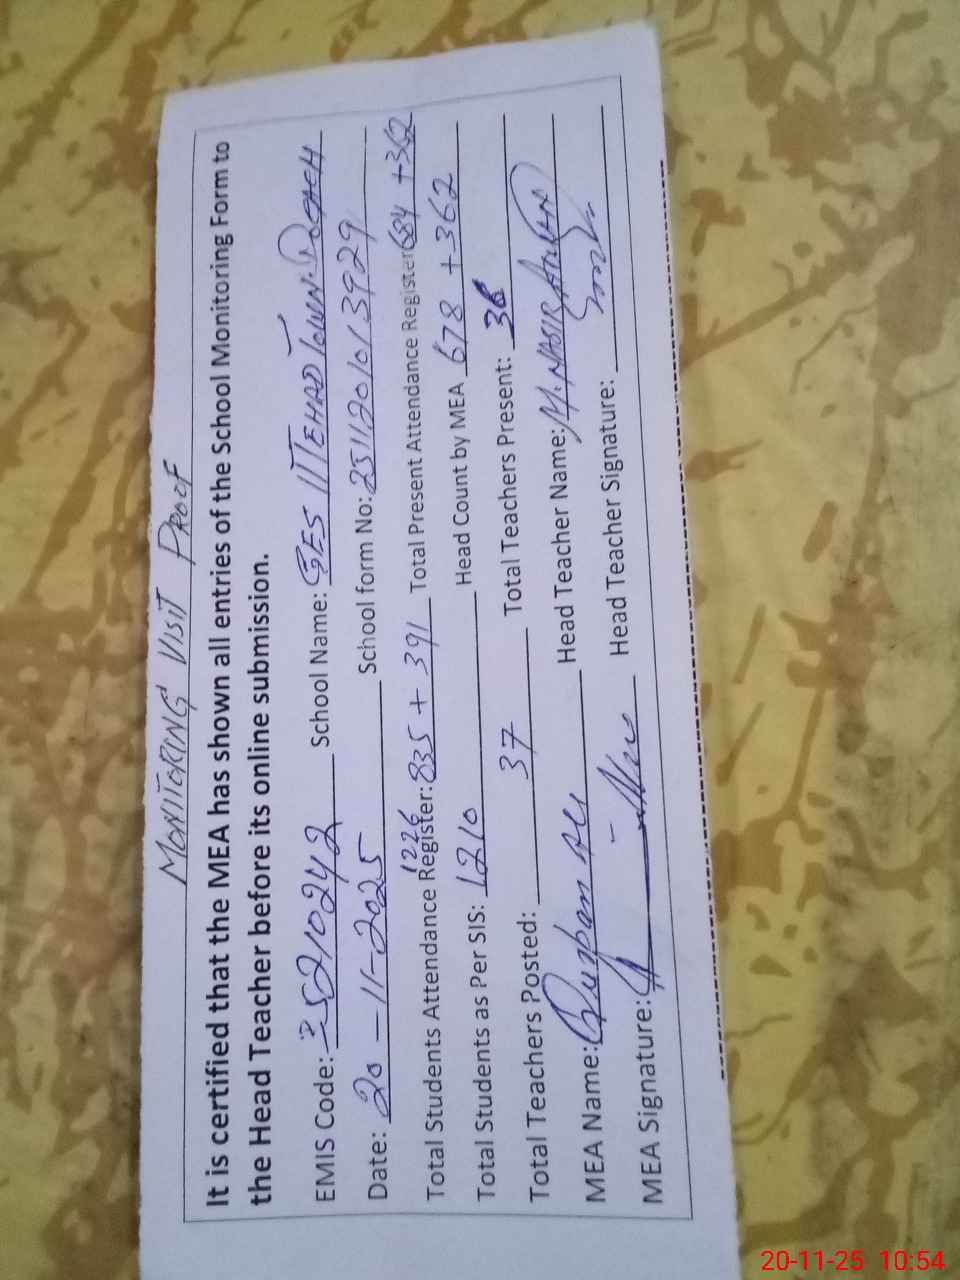 MONITERING VISIT PROOF
It is certified that the MEA has shown all entries of the School Monitoring Form to
the Head Teacher before its online submission.
EMIS Code: 35210242 School Name: GES ITTEHAD TOWN
Date: 20-11-2025 School form No: 251120101013929
1226
Total Students Attendance Register: 835 + 391 Total Present Attendance Register 684 + 362
Total Students as Per SIS: 1210 Head Count by MEA 678 + 362
Total Teachers Posted: 37 Total Teachers Present: 36
MEA Name: Head Teacher Name: M. NASIR
MEA Signature: Head Teacher Signature:
20-11-25 10:54